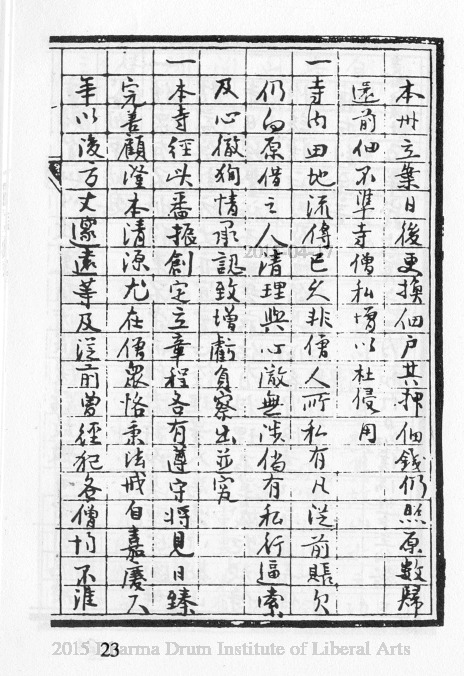 本州立業日後更換佃戶其押佃錢仍照原數歸
還前佃不準寺僧私增以杜侵用
一寺內田地流傳已久非僧人所私有凡從前賬欠
仍向原借之人清理與心澈無涉倘有私行逼索
及心徹狥情承認致增虧負察出並究
一本寺經此番振創定立章程各有遵守將見日臻
完善顧澄本清源尤在僧眾恪秉法戒自嘉慶八
年以後方丈邃遠等及從前曾經犯各僧均不準
2015 Dharma Drum Institute of Liberal Arts
23